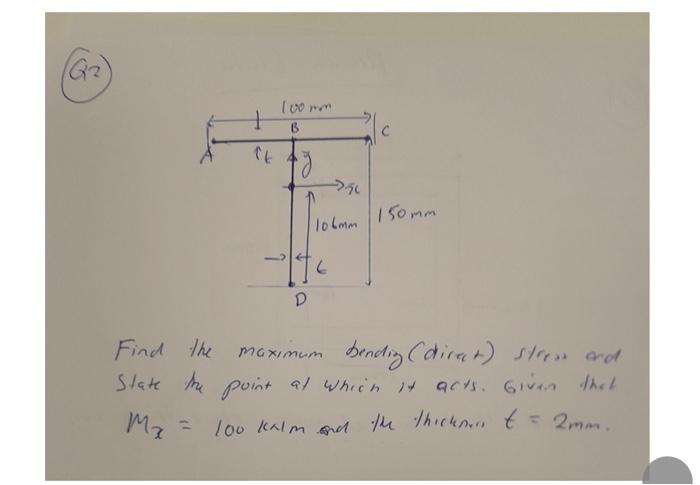 Q2
100 mm
B
C
A
t
y
x
106mm
150 mm
t
D
Find the maximum bending (direct) stress and
State the point at which it acts. Given that
Mx = 100 kNm and the thickness t = 2mm.